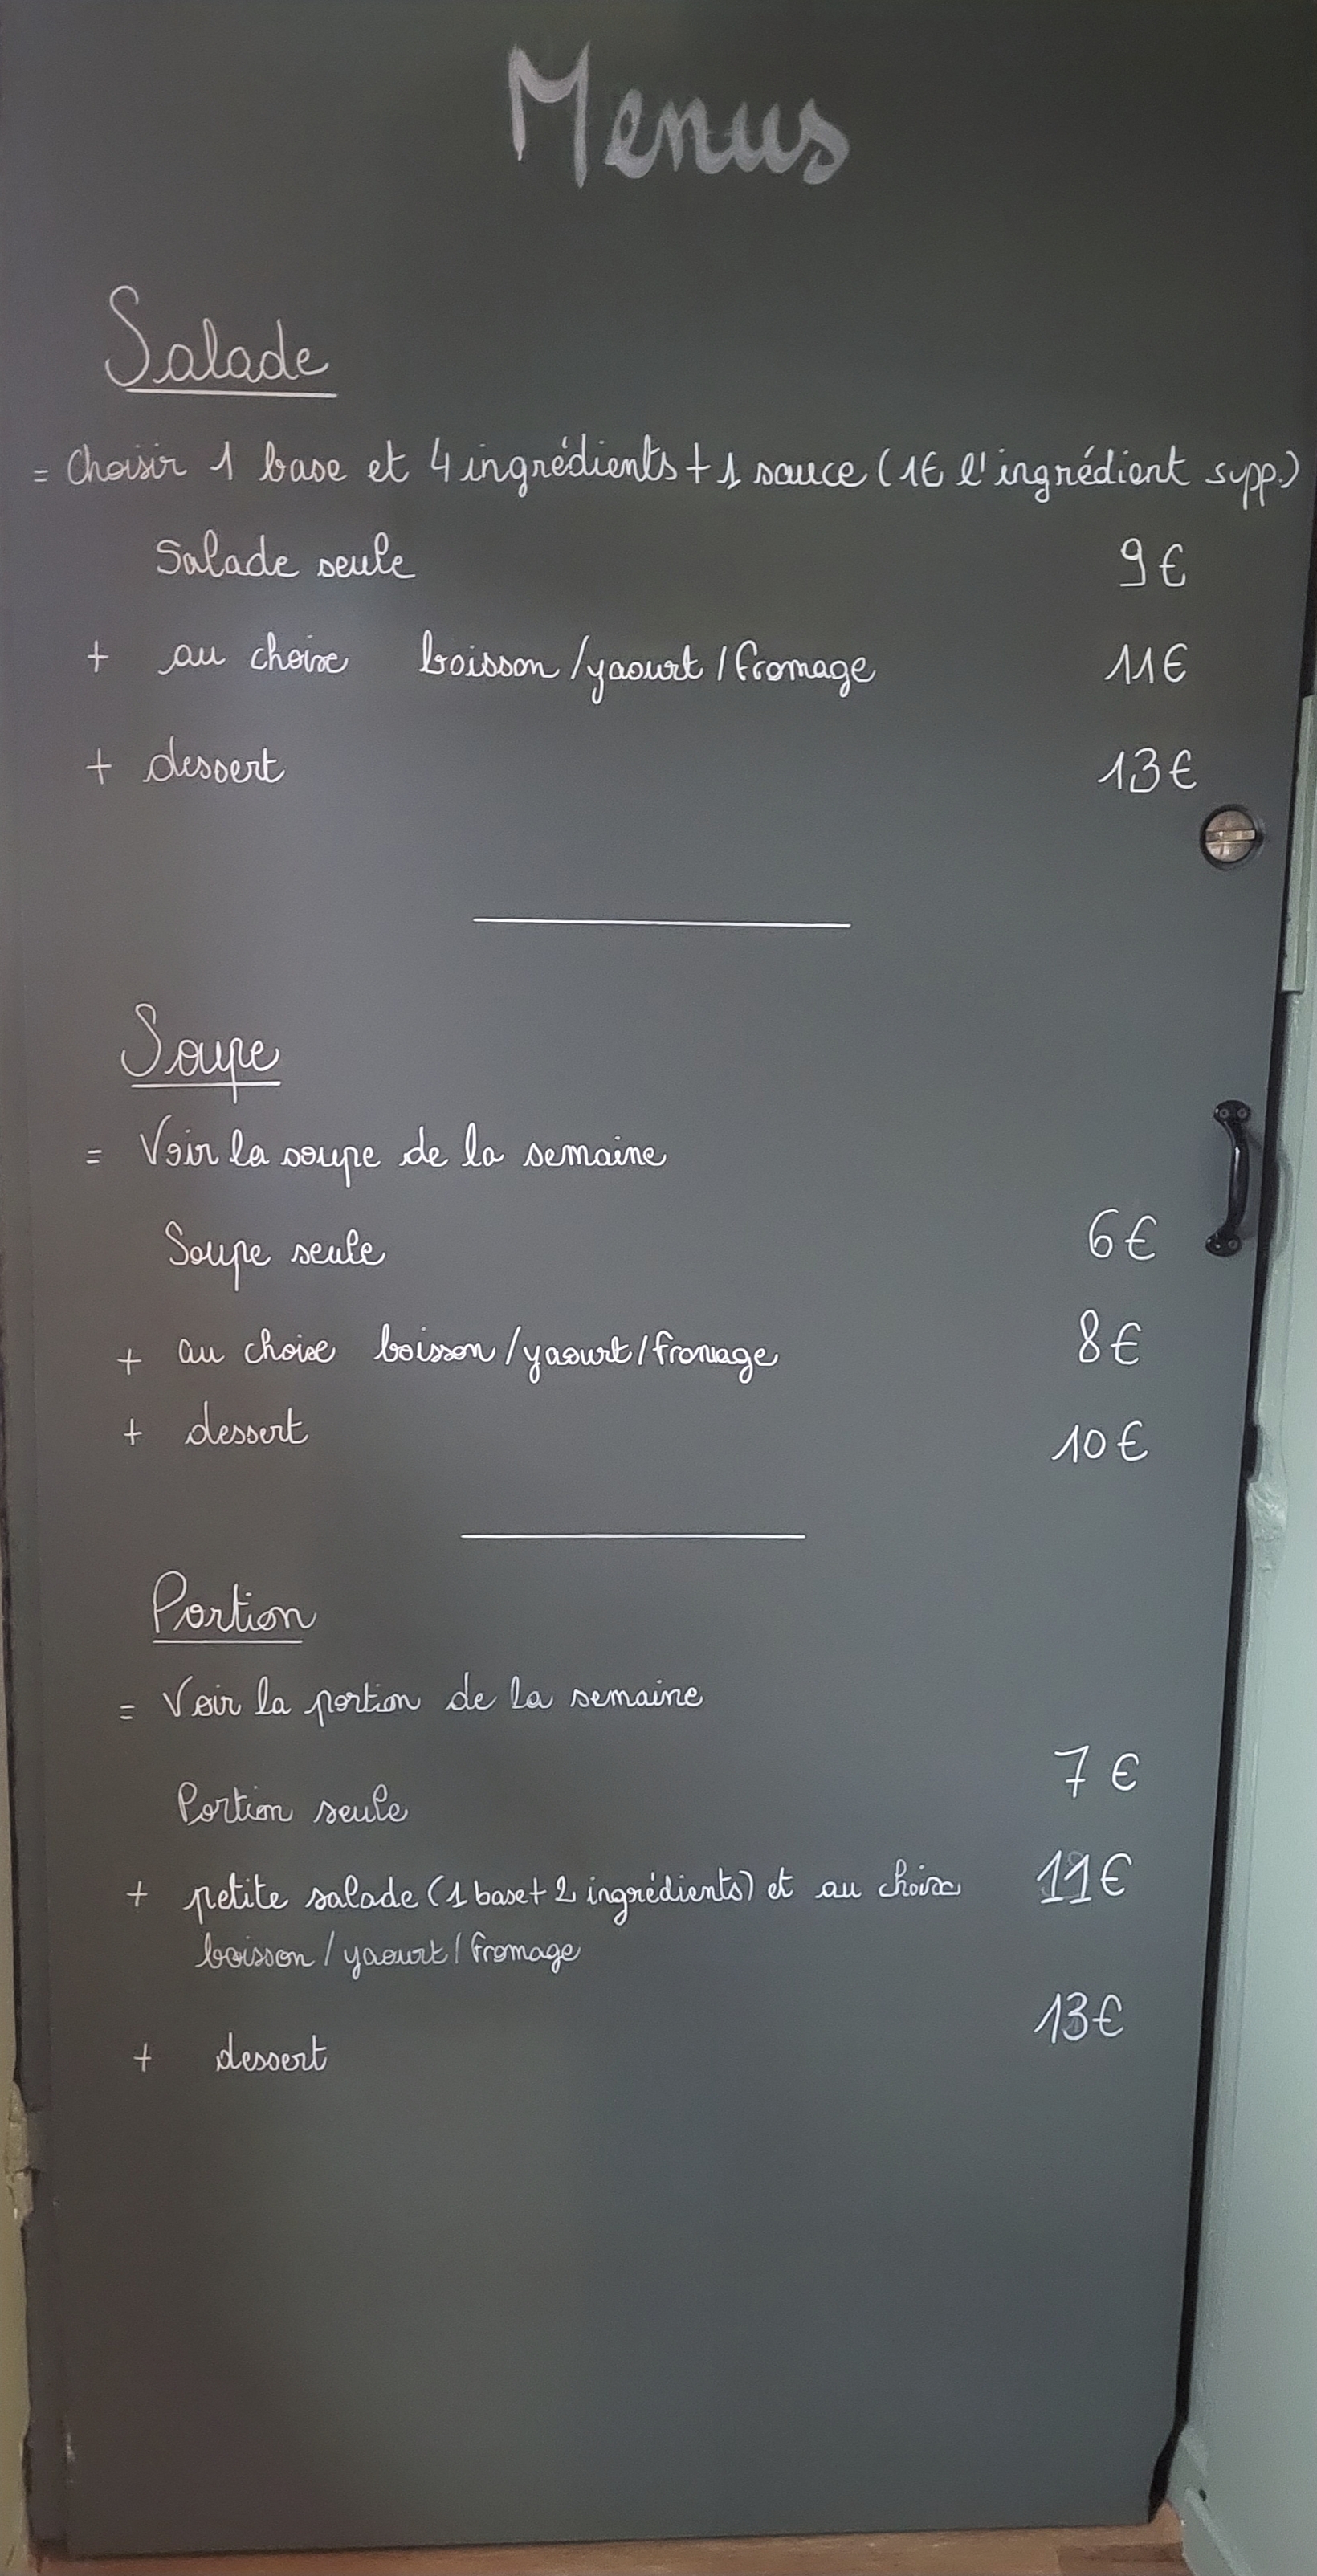 Menus
Salade
= Choisir 1 base et 4 ingrédients + 1 sauce (1€ l'ingrédient supp.)
Salade seule 9€
+ au choix boisson/yaourt/fromage 11€
+ dessert 13€
Soupe
= Voir la soupe de la semaine
Soupe seule 6€
+ au choix boisson/yaourt/fromage 8€
+ dessert 10€
Portion
= Voir la portion de la semaine
Portion seule 7€
+ petite salade (1 base + 2 ingrédients) et au choix 11€
boisson/yaourt/fromage
+ dessert 13€